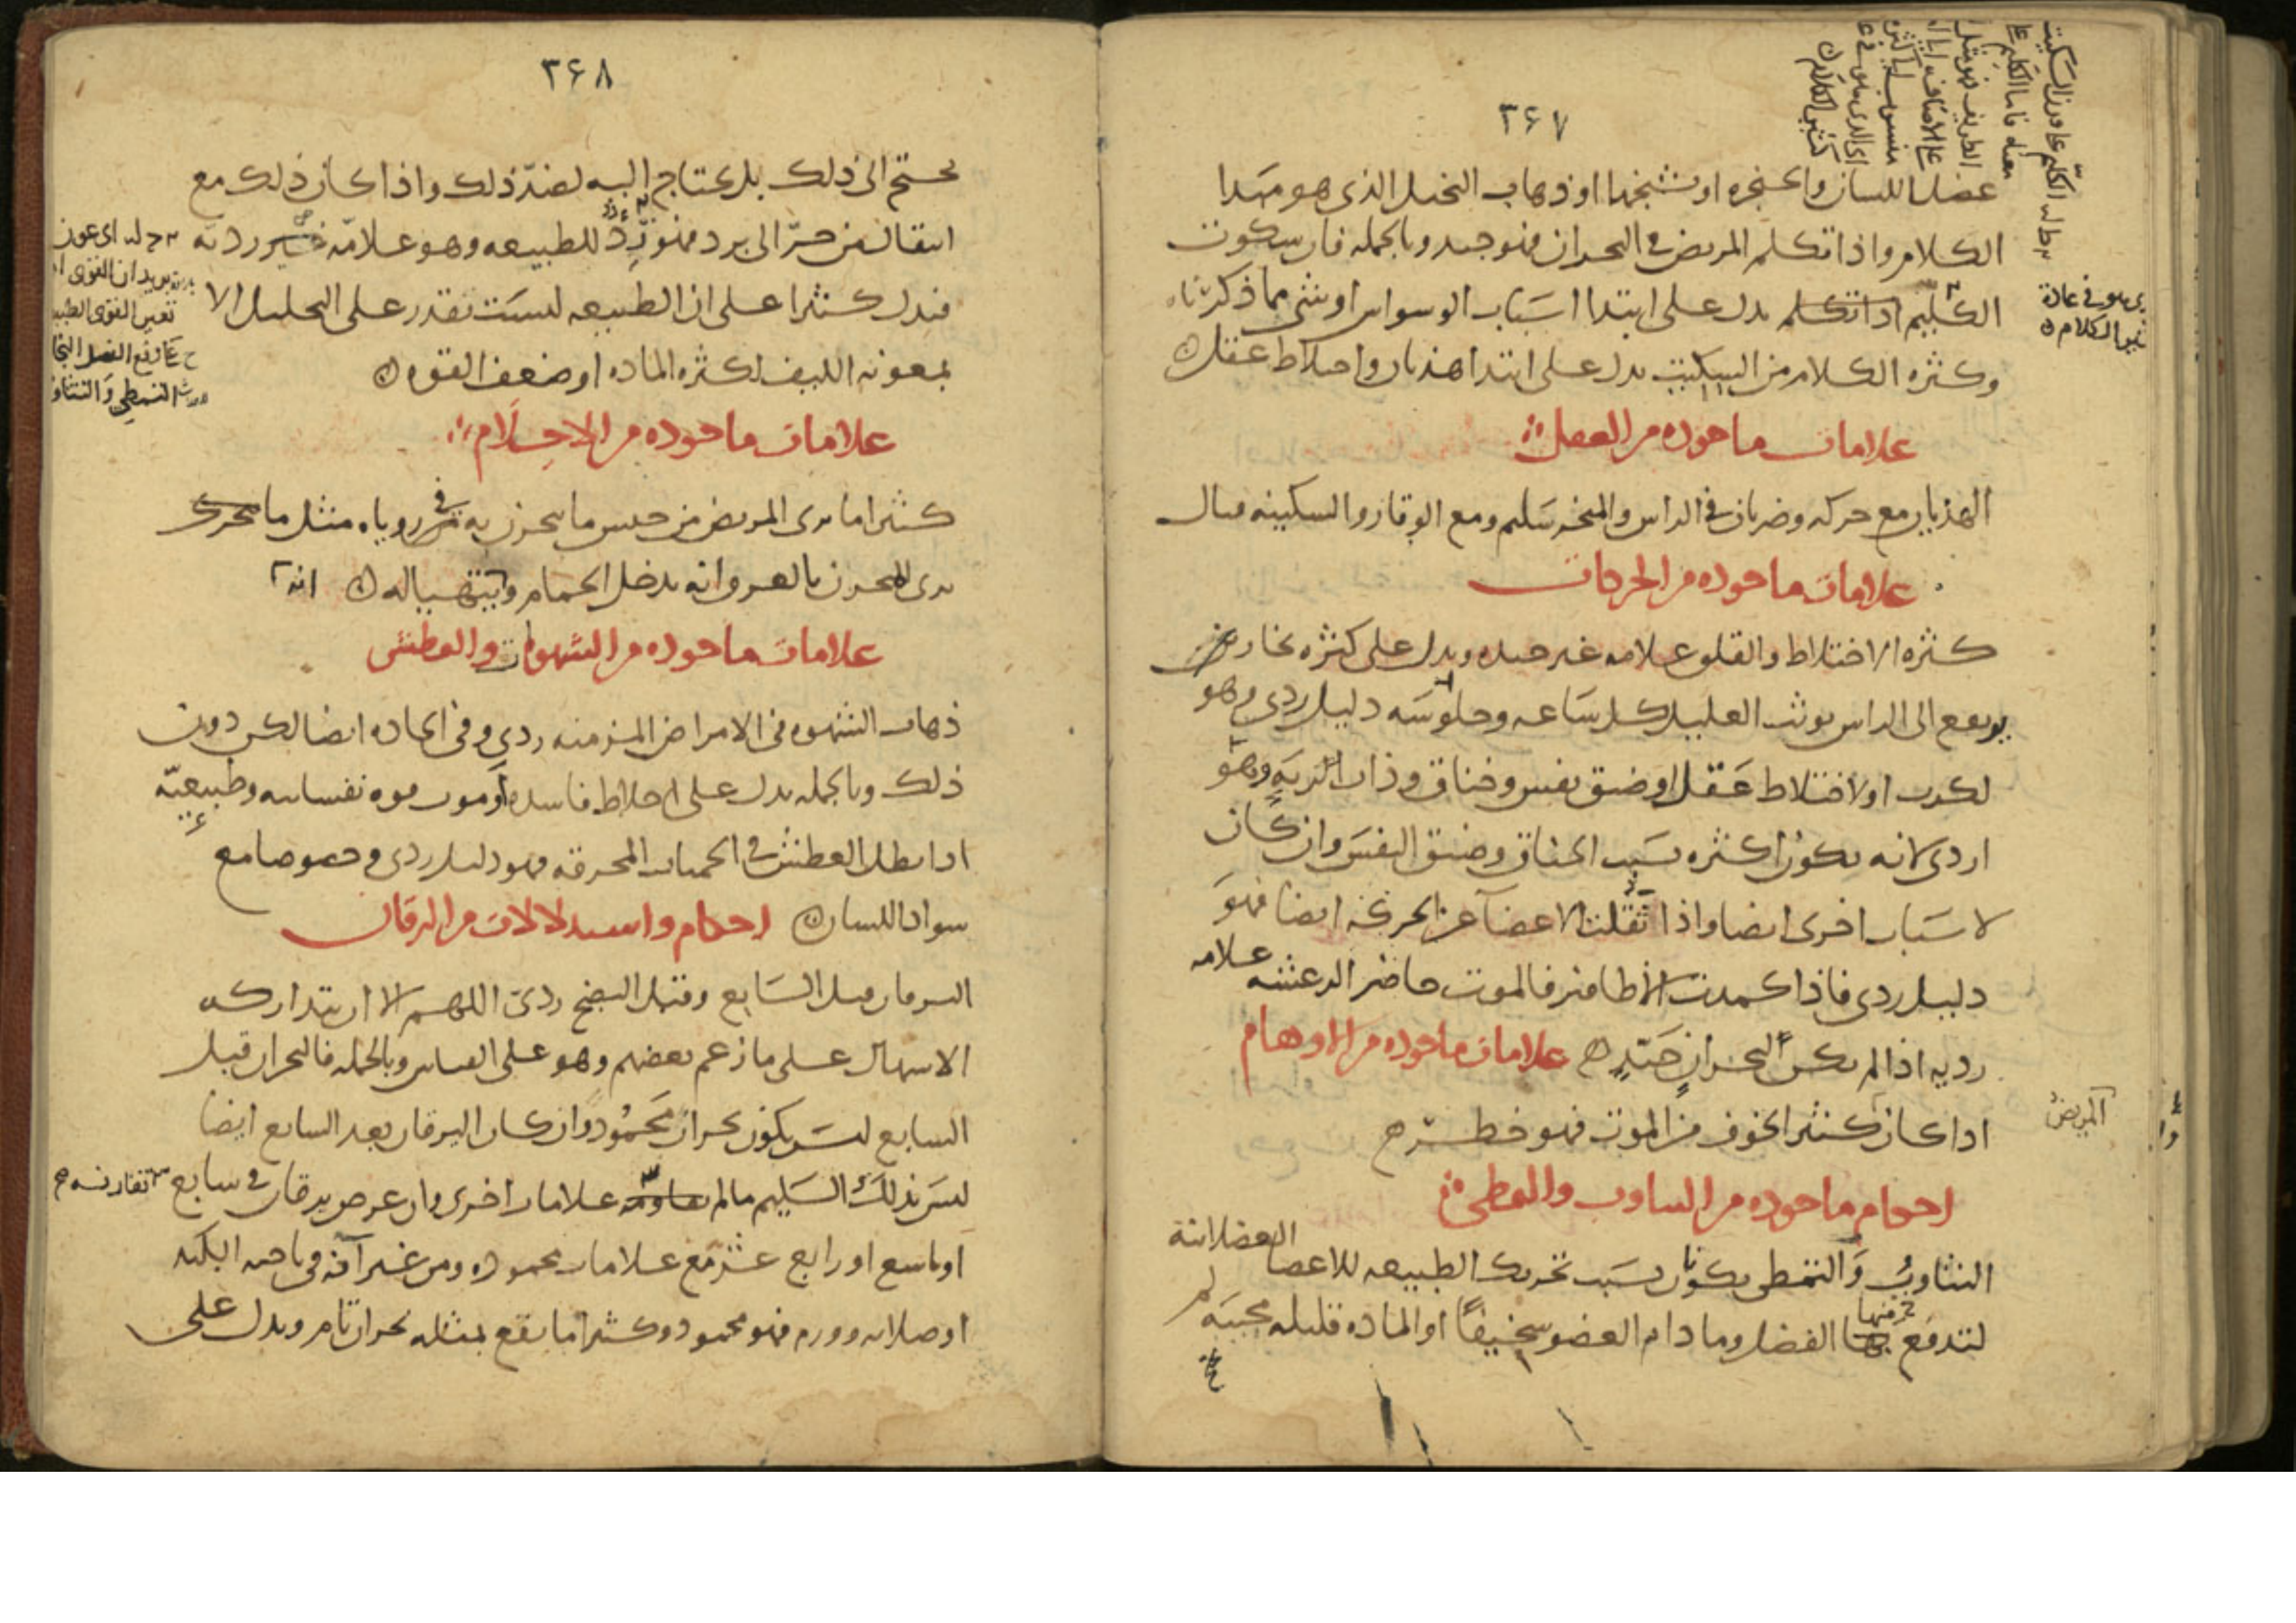 ۳۶۷
عضل اللسان والحنجره او تشنجها او ذهاب التخيل الذى هو مبدا
الكلام واذا تكلم المريض فى البحران فهو جيد وبالجمله فان سكوت
الكليم اذا تكلم يدل على ابتدا اسباب الوسواس او شى مما ذكرناه
وكثره الكلام من السكيت يدل على ابتدا هذيان واختلاط عقل
علامات ماخوده من العقل
الهذيان مع حركه وضربان فى الراس والمنخر سليم ومع الوقار والسكينه قتال
علامات ماخوده من الحركات
كثره الاختلاط والقلق علامه غير جيده ويدل على كثره بخار
يرتفع الى الراس توثب العليل كل ساعه وجلوسه دليل ردى وهو
لكرب او لاختلاط عقل او ضيق نفس وخناق وذات الريه وهو
اردى لانه يكون اكثره بسبب الخناق وضيق النفس وان كان
لاسباب اخرى ايضا واذا ثقلت الاعضا عن الحركه ايضا فهو
دليل ردى فاذا كمدت الاظافير فالموت حاضر الرعشه علامه
رديه اذا لم يكن البحران جيد علامات ماخوده من الاوهام
اذا كان كثير الخوف من الموت فهو خطر
المريض
احكام ماخوده من التثاوب والتمطى
التثاوب والتمطى يكونان بسبب تحريك الطبيعه للاعضا العضلانية
لتدفع منها الفضل وما دام العضو سخيفا او الماده قليله مجيبه لم
۳۶۸
يحتج الى ذلك بل يحتاج اليه لضد ذلك واذا كان ذلك مع
انتقال من حر الى برد فهو للطبيعه وهو علامه غير رديه
فيدل كثيرا على ان الطبيعه ليست تقدر على التحليل الا
بمعونه الليف لكثره الماده او ضعف القوه
علامات ماخوده من الاحلام
كثيرا ما يرى المريض من جنس ما يبحرن به فى روياه مثل ما
يرى المبحرن بالعرق انه يدخل الحمام وانه يتهيا له
علامات ماخوده من الشهوات والعطش
ذهاب الشهوه فى الامراض المزمنه ردى وفى الحاده ايضا لكن دون
ذلك وبالجمله يدل على اخلاط فاسده او موت قوه نفسانيه وطبيعيه
اذا بطل العطش فى الحميات المحرقه فهو دليل ردى وخصوصا مع
سواد اللسان احكام واستدلالات من اليرقان
اليرقان قبل السابع وقبل النضج ردى اللهم الا ان يتداركه
الاسهال على ما زعم بعضهم وهو على القياس وبالجمله فالبحران قبل
السابع ليس يكون بحران محمود وان كان اليرقان بعد السابع ايضا
ليس بذلك السليم ما لم تقارنه علامات اخرى وان عرض يرقان فى سابع
او تاسع او رابع عشر مع علامات محموده ومن غير آفه فى ناحيه الكبد
او صلابه وورم فهو محمود وكثيرا ما يقع بمثله بحران تام ويدل على